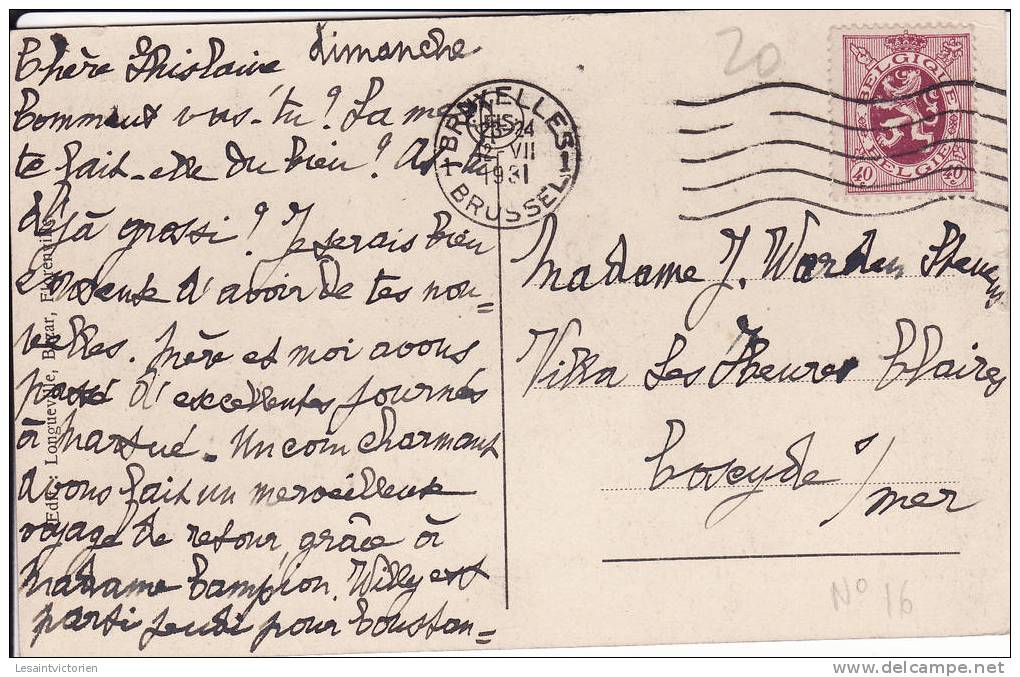 dimanche
Chère Ghislaine
Comment vas-tu? La mer
te fait-elle du bien? As-tu
déjà grossi? Je serais bien
d'avoir de tes nou=
velles. Mère et moi avons
passé d'excellentes journés
à Martué. Un coin charmant
avons fait un merveilleux
voyage de retour, grâce à
Madame Campion. Willy est
parti jeudi pour
Edit. Longueville, Bazar, Florenville
20
BRUXELLES 1
23-24
VII
1931
BRUSSEL
BELGIQUE
BELGIE
40 40
Madame J.
Villa Les Heures Claires
Coxyde s/
mer
No 16
Lesaintvictorien
delcampe.net